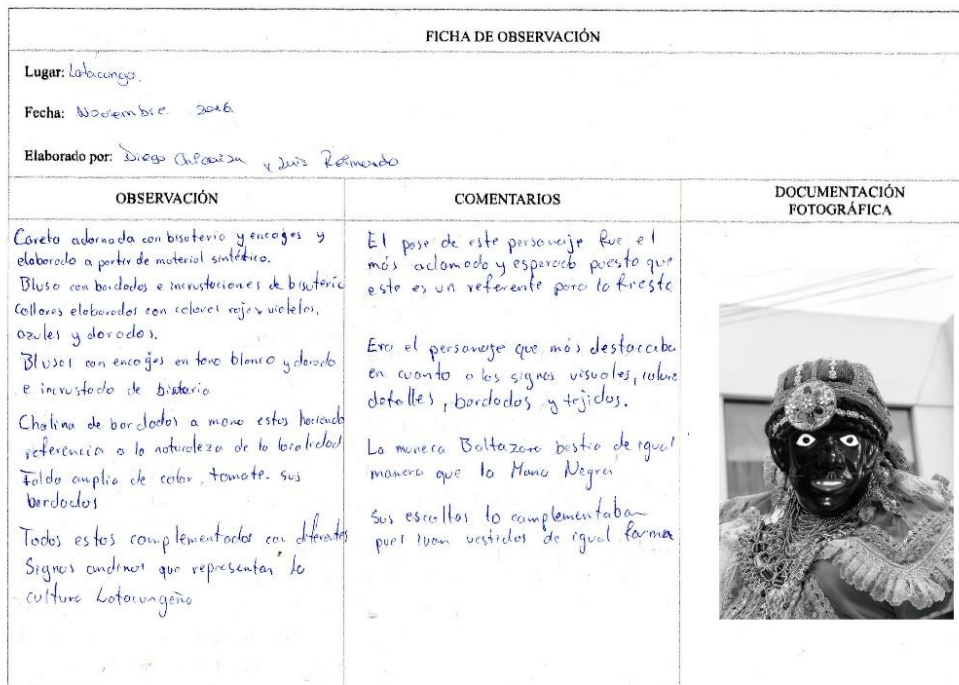 FICHA DE OBSERVACIÓN
Lugar: Latacunga.
Fecha: Noviembre 2016
Elaborado por: Diego y Luis
OBSERVACIÓN
Careta adornada con bisuteria y encajes y
elaborado a partir de material sintético.
Blusa con bordados e incrustaciones de bisuteria
Collares elaborados con colores rojos violetas,
azules y dorados.
Blusas con encajes en tono blanco y dorado
e incrustado de
Chalina de bordados a mano estos haciendo
referencia a la naturaleza de la localidad
Falda amplia de color tomate. sus
bordados
Todos estos complementados con diferentes
Signos andinos que representan la
cultura Latacungeña
COMENTARIOS
El pase de este personaje fue el
más aclamado y esperado puesto que
este es un referente para la fiesta
Era el personaje que más destacaba
en cuanto a los signos visuales,
detalles, bordados y tejidos.
La muneca Baltazara bestia de igual
manera que la Mama Negra
Sus escoltas lo complementaban
pues ivan vestidos de igual forma
DOCUMENTACIÓN
FOTOGRÁFICA